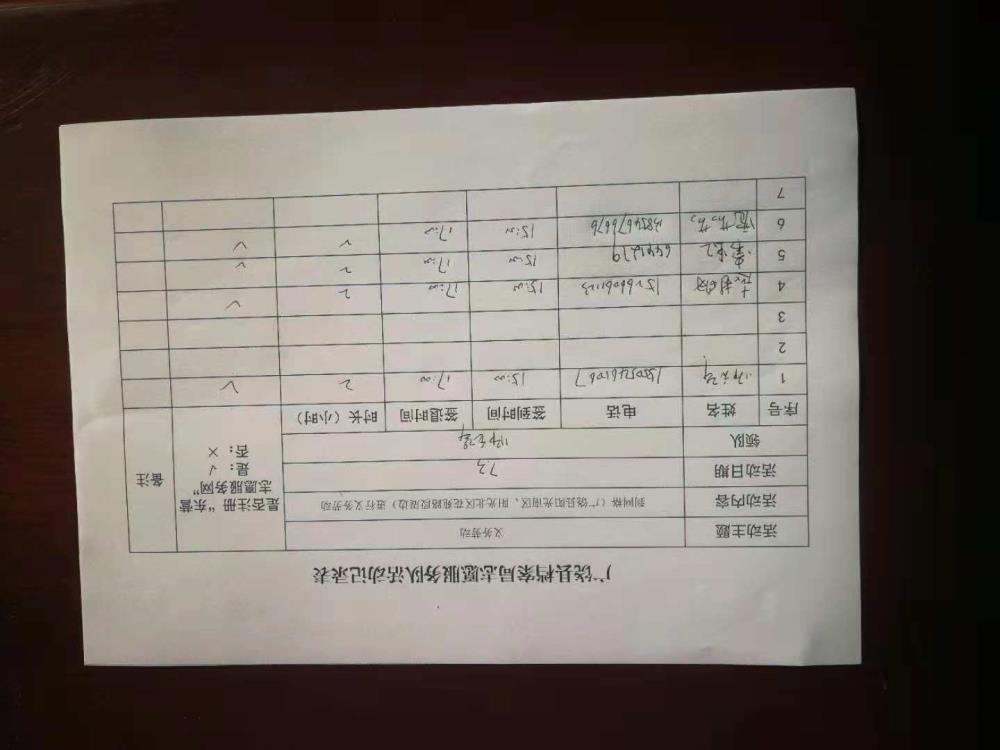 广饶县档案局志愿服务队活动记录表
活动主题 义务劳动
活动内容 到网格（广饶县阳光南区、阳光北区花苑路段周边）进行义务劳动
活动日期 7.3
领队
是否注册“东营志愿服务网” 是：√ 否：×
备注
序号 姓名 电话 签到时间 签退时间 时长（小时）
1 15:00 17:00 2 √
2
3
4 15266061123 15:00 17:00 2 √
5 6441279 15:00 17:00 2 √
6 13854676676 15:00 17:00 2 √
7